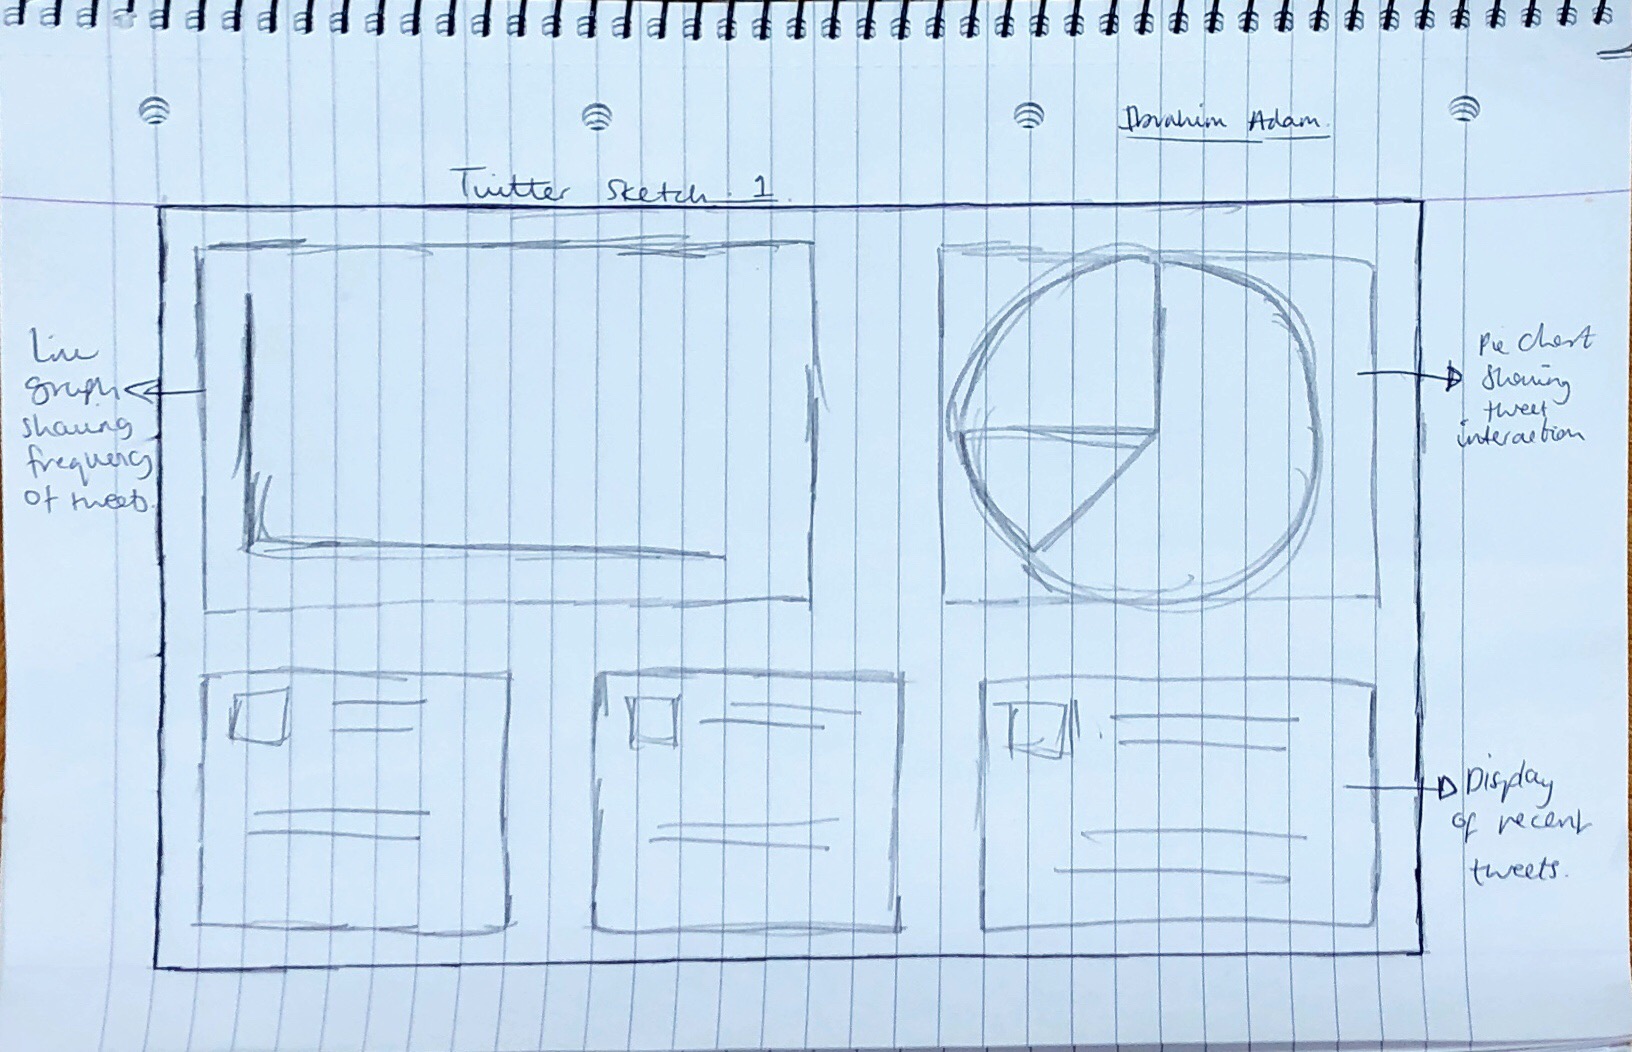 Ibrahim Adam.
Twitter Sketch. 1.
Line
graph
sharing
frequency
of tweets.
Pie Chart
Sharing
tweet
interaction
Display
of recent
tweets.